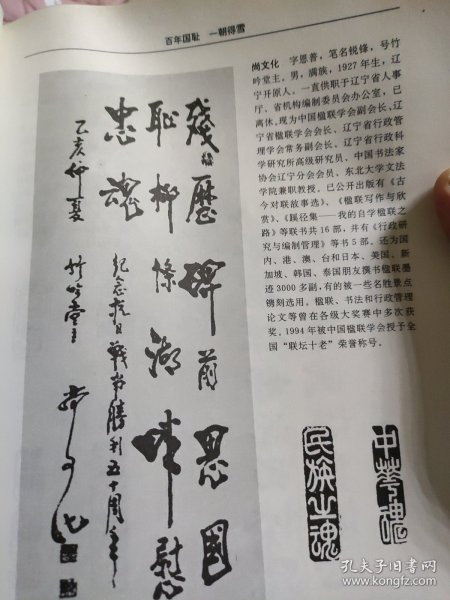 百年国耻　一朝得雪
残历碑前思国
耻柳条湖畔慰
忠魂
纪念抗日战争胜利五十周年
乙亥仲夏
竹吟堂主
尚文化　字恩普，笔名锐锋，号竹
吟堂主，男，满族，1927年生，辽
宁开原人。一直供职于辽宁省人事
厅、省机构编制委员会办公室，已
离休。现为中国楹联学会副会长、辽
宁省楹联学会会长、辽宁省行政管
理学会常务副会长、辽宁省行政科
学研究所高级研究员、中国书法家
协会辽宁分会会员、东北大学文法
学院兼职教授。已公开出版有《古
今对联故事选》、《楹联写作与欣
赏》、《蹊径集——我的自学楹联之
路》等联书共16部，并有《行政研
究与编制管理》等书5部。还为国
内、港、澳、台和日本、美国、新
加坡、韩国、泰国朋友撰书楹联墨
迹3000多副，有的被一些名胜景点
镌刻选用。楹联、书法和行政管理
论文等曾在各级大奖赛中多次获
奖。1994年被中国楹联学会授予全
国“联坛十老”荣誉称号。
中华魂
民族之魂
孔夫子旧书网
www.kongfz.com